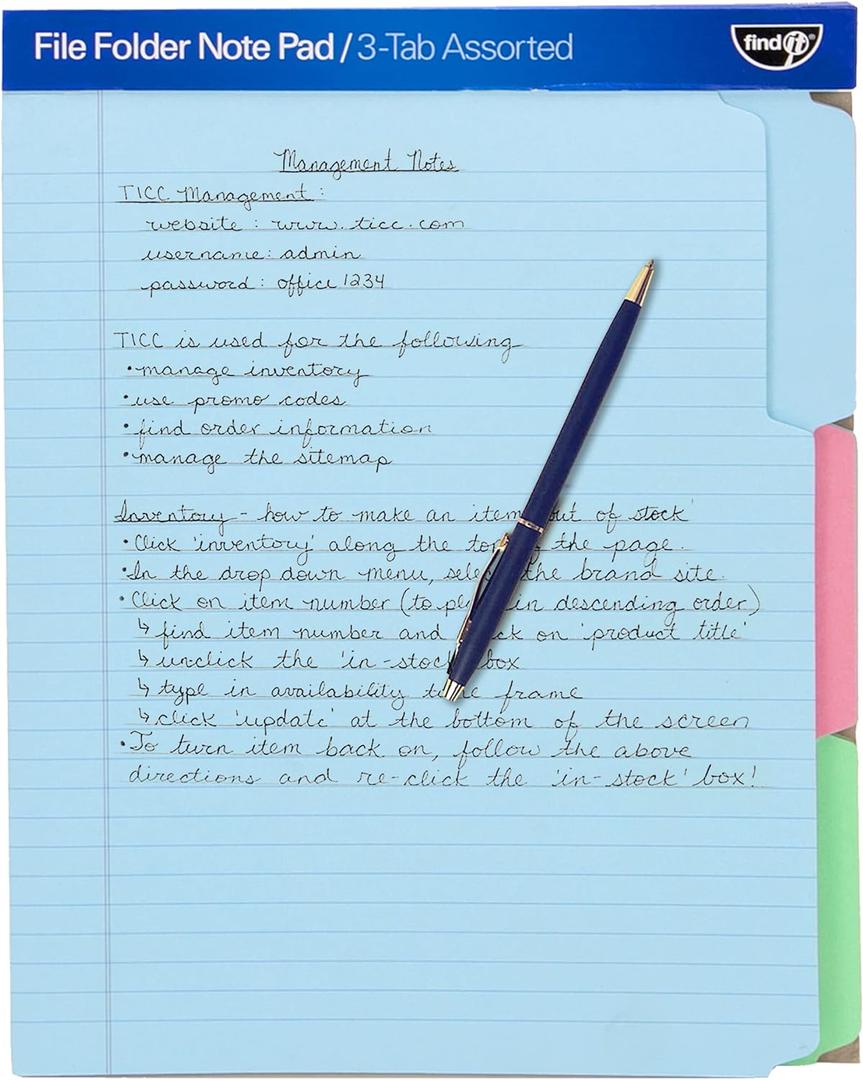 File Folder Note Pad / 3-Tab Assorted
find it®
Management Notes
TICC Management:
website: www.ticc.com
username: admin
password: office1234
TICC is used for the following
• manage inventory
• use promo codes
• find order information
• manage the sitemap
Inventory - how to make an item out of stock'
• Click 'inventory' along the top the page.
• In the drop down menu, the brand site.
• Click on item number (to in descending order)
↳ find item number and on 'product title'
↳ unclick the 'in-stock box
↳ type in availability frame
↳ click 'update' at the bottom of the screen
• To turn item back on, follow the above
directions and re-click the 'in-stock' box!